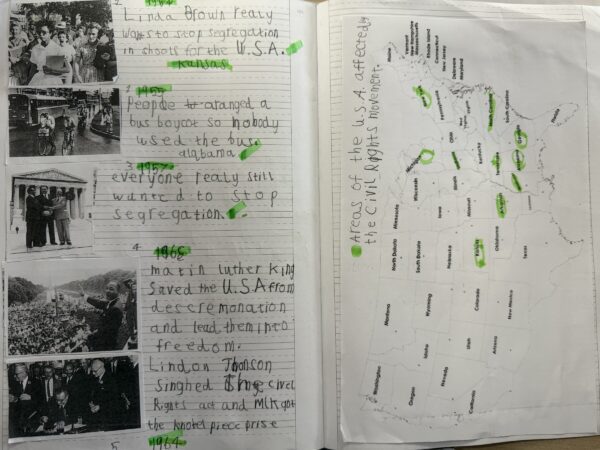 1 1954
Linda Brown realy
wants to stop segregation
in shools for the U.S.A.
Kansas
2 1955
People aranged a
bus boycot so nobody
used the bus.
alabama
3. 1957
everyone realy still
wanted to stop
segregation.
4. 1963
matin luther King
Saved the U.S.A from
descremonation
and lead them into
freedom.
Lindon Jhonson
Singhed the civel
Rights act and MLK got
the knobel piece prise
5 1964
Areas of the U.S.A. affected by
the Civil Rights movement.
Maine
Vermont
New Hampshire
Massachusetts
Rhode Island
Connecticut
New Jersey
Delaware
Maryland
Pennsylvania
Ohio
West Virginia
Virginia
North Carolina
South Carolina
Georgia
Florida
Kentucky
Tennessee
Alabama
Michigan
Indiana
Illinois
Wisconsin
Minnesota
Iowa
Missouri
Arkansas
North Dakota
South Dakota
Nebraska
Kansas
Oklahoma
Texas
Montana
Wyoming
Colorado
New Mexico
Idaho
Utah
Arizona
Washington
Oregon
Nevada
California